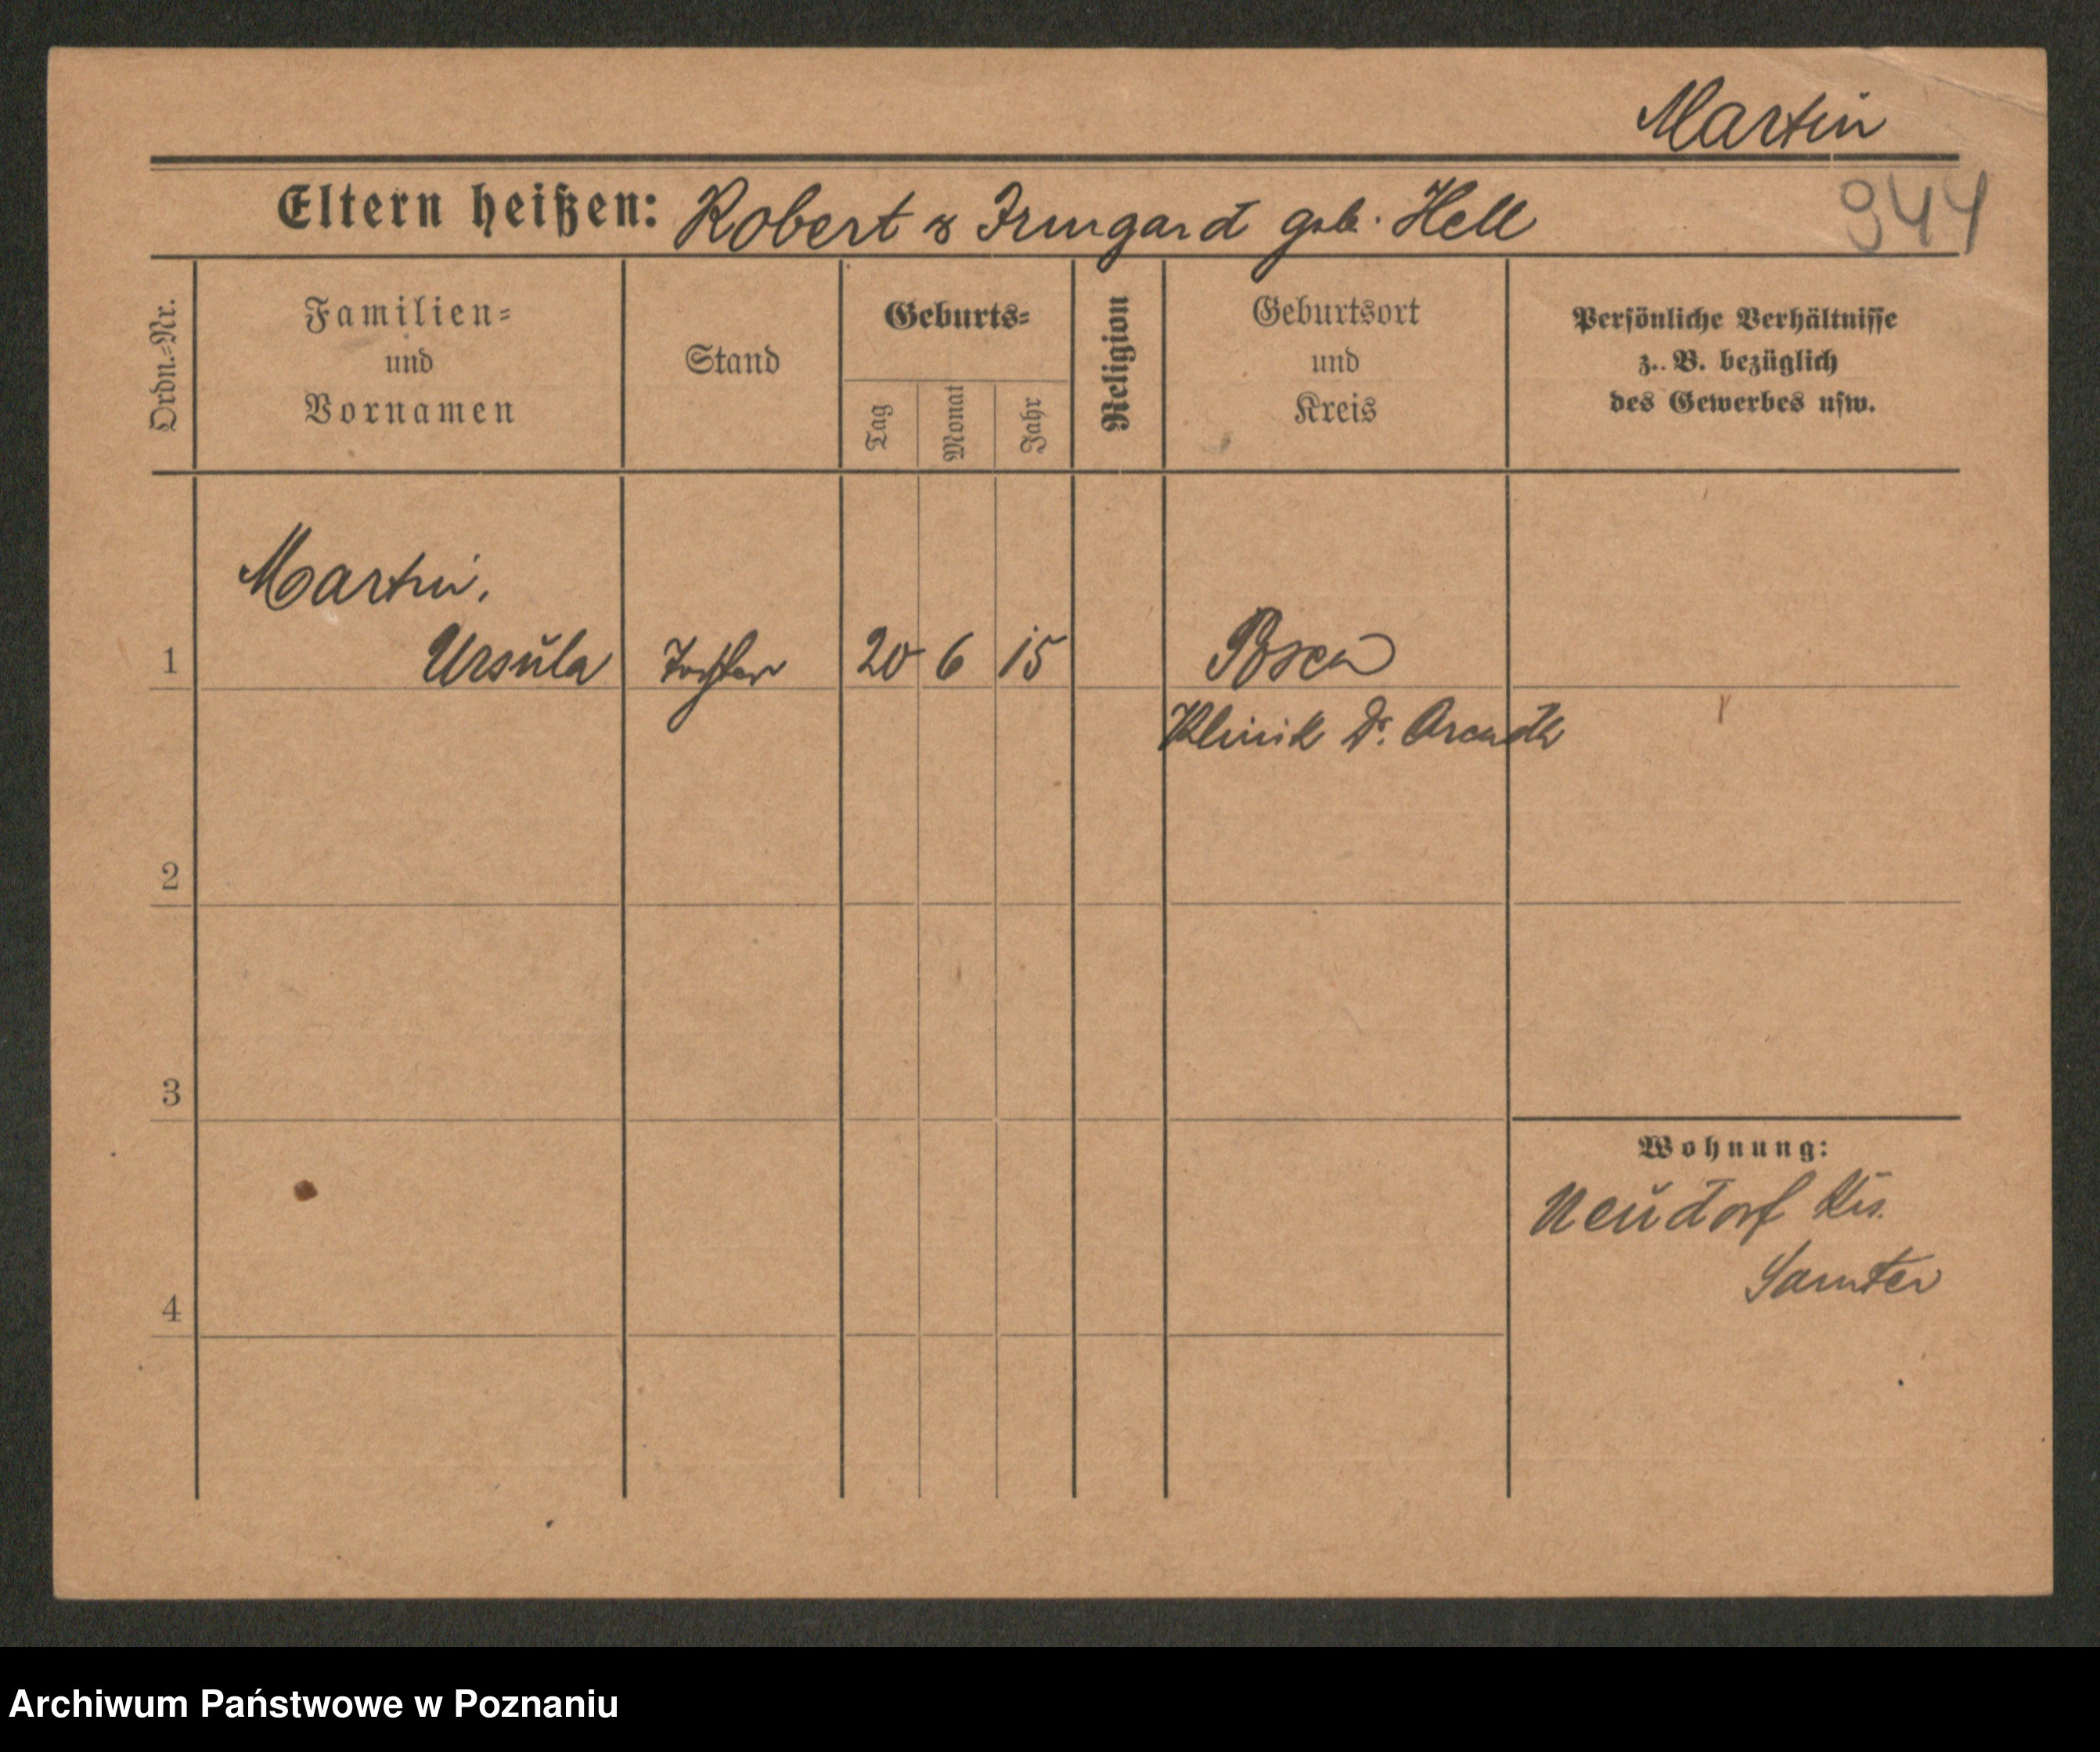 Martin
Eltern heißen: Robert & Irmgard geb. Hell
944
Ordn.=Nr.
Familien=
und
Vornamen
Stand
Geburts=
Tag
Monat
Jahr
Religion
Geburtsort
und
Kreis
Persönliche Verhältnisse
z. B. bezüglich
des Gewerbes usw.
Martin,
1 Ursula Tochter 20 6 15 Posen
Klinik Dr.
2
3
Wohnung:
Neudorf Krs.
Samter
4
Archiwum Państwowe w Poznaniu